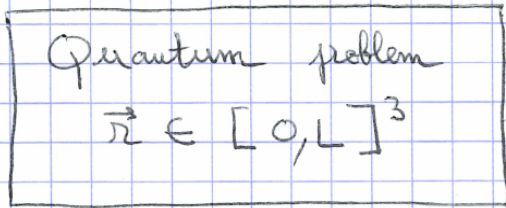 Quantum problem
$\vec{r} \in [0,L]^3$